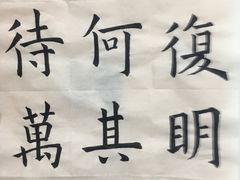 復明
何其
待萬